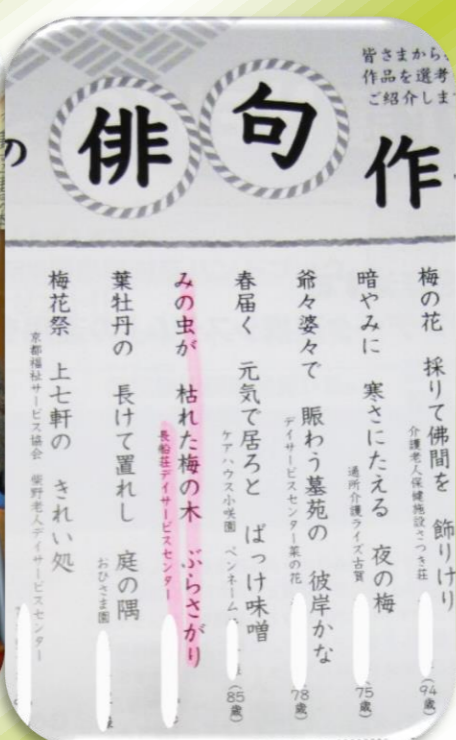 皆さまから
作品を選考
ご紹介しま
の俳句作
梅の花 採りて佛間を 飾りけり
介護老人保健施設さつき荘
(94歳)
暗やみに 寒さにたえる 夜の梅
通所介護ライズ古賀
75歳)
爺々婆々で 賑わう墓苑の 彼岸かな
デイサービスセンター菜の花
78歳)
春届く 元気で居ろと ばっけ味噌
ケアハウス小咲園 ペンネーム
(85歳)
みの虫が 枯れた梅の木 ぶらさがり
長船荘デイサービスセンター
葉牡丹の 長けて置れし 庭の隅
おひさま園
梅花祭 上七軒の きれい処
京都福祉サービス協会 柴野老人デイサービスセンター